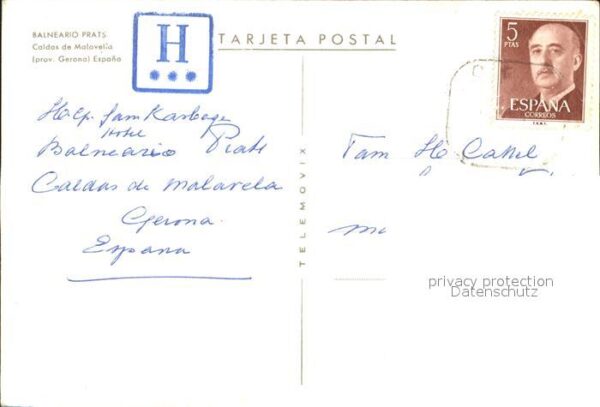 BALNEARIO PRATS
Caldas de Malavella
(prov. Gerona) España
H
TARJETA POSTAL
5
PTAS
ESPAÑA
CORREOS
Hotel
Balneario Prats
Caldas de Malavela
Gerona
España
TELEMOVIX
Fam
privacy protection
Datenschutz